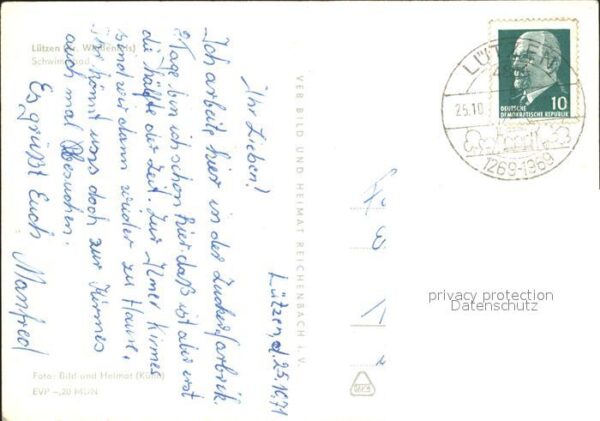 Lützen (Kr. Weißenfels)
Schwimmbad
Lützen, d. 25.10.71
Ihr Lieben!
Ich arbeite hier in der Zuckerfabrik.
8 Tage bin ich schon hier daß ist aber erst
die hälfte der Zeit. Zur Ilmer Kirmes
sind wir dann wieder zu Hause,
Ihr könnt uns doch zur Kirmes
auch mal Besuchen.
Es grüßt Euch
Manfred
Foto: Bild und Heimat (Kühn)
EVP -,20 MDN
VEB BILD UND HEIMAT REICHENBACH i. V.
LÜTZEN
25.10
1269-1969
DEUTSCHE
DEMOKRATISCHE REPUBLIK
10
privacy protection
Datenschutz